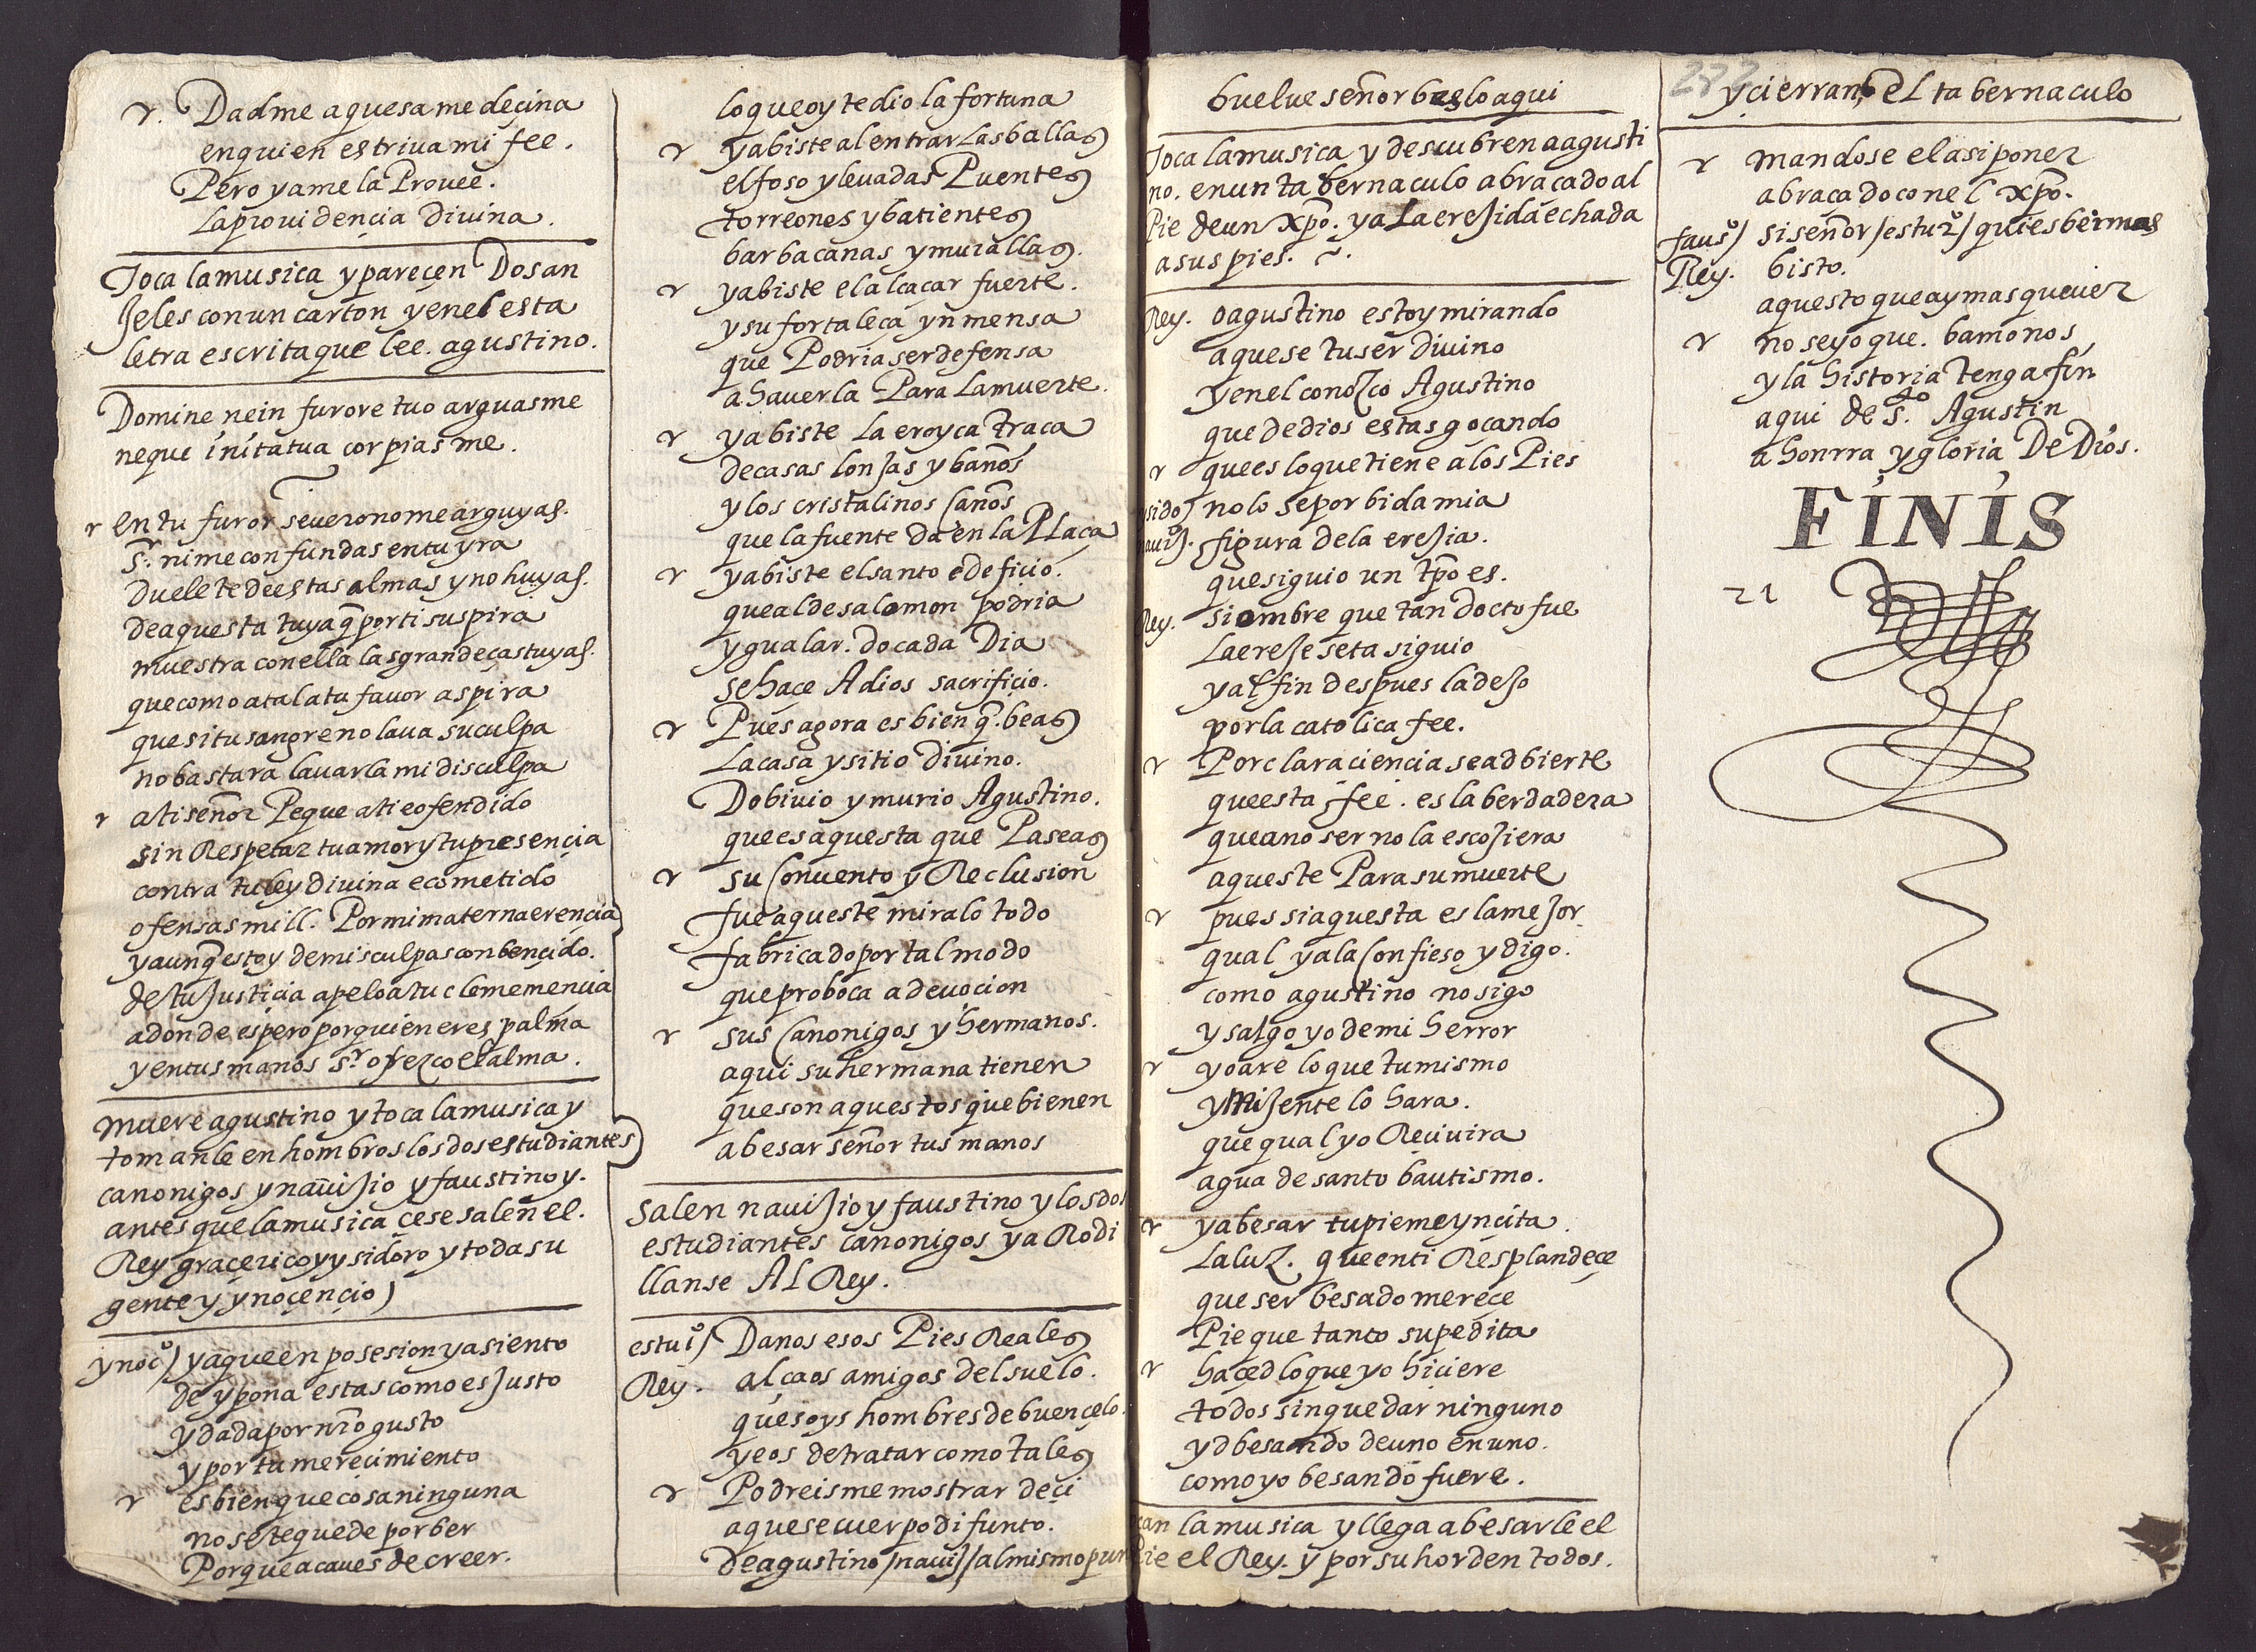 r. Dadme aquesa medeçina
en quien estriua mi fee.
Pero ya me la Prouee.
la prouidençia Diuina.
Toca la musica y pareçen Dos an
Jeles con un carton y en el esta
letra escrita que lee. agustino.
Domine ne in furore tuo arguas me
neque in ita tua corpias me.
r en tu furor seuero no me arguyas.
Sr. ni me confundas en tu yra
duelete de estas almas y no huyas.
de aquesta tuya q̃ por ti suspira
muestra con ella las grandeças tuyas.
que como a tal a tu fauor aspira
que si tu sangre no laua su culpa
no bastara lauarla mi disculpa
r a ti señor Peque a ti e ofendido
sin Respetar tu amor y tu presençia
contra tu ley diuina e cometido
ofensas mill. Por mi materna erençia
y aunq̃ estoy de mis culpas conbençido.
de tu Justiçia apelo a tu clememençia
a donde espero por quien eres palma
y en tus manos Sr. ofrezco el alma.
Muere agustino y toca la musica y
tomanle en hombros los dos estudiantes
canonigos y nauiJio y faustino y.
antes que la musica çese salen el.
Rey graçerico y ysidoro y toda su
gente y ynoçençio)
ynoçº) ya que en posesion y asiento
de ypona estas como es Justo
y dada por nr̃o gusto
y por tu mereçimiento
r es bien que cosa ninguna
no se te quede por ber
Porque acaues de creer.
lo que oy te dio la fortuna
r ya biste al entrar las ballas
el foso y leuadas Puentes
torreones y batientes
barbacanas y murallas.
r ya biste el alcaçar fuerte.
y su fortaleça ynmensa
que Podria ser defensa
a hauerla Para la muerte.
r ya biste la eroyca traça
de casas lonJas y baños
y los cristalinos caños
que la fuente da en la Plaça
r ya biste el santo edefiçio.
que al de salomon podria
ygualar. do cada Dia
se haçe A dios sacrifiçio.
r Pues agora es bien q̃. beas
la casa y sitio Diuino.
Do biuio y murio Agustino.
que es aquesta que Paseas
r su Conuento y Reclusion
fue aqueste miralo todo
fabricado por tal modo
que proboca a deuoçion
r sus Canonigos y hermanos.
aqui su hermana tienen
que son aquestos que bienen
a besar señor tus manos
Salen nauiJio y faustino y los dos
estudiantes canonigos y a Rodi
llanse Al Rey.
estuº/ Danos esos Pies Reales
Rey. alçaos amigos del suelo.
que soys hombres de buen çelo.
y e os de tratar como tales
r Podreisme mostrar deçi
aquese cuerpo difunto.
de agustino /nauiJ/ al mismo pun
buelue señor beslo aqui
Toca la musica y descubren a agusti
no. en un tabernaculo abraçado al
Pie de un xp̃o. y a La ereJida echada
a sus pies. ~.
Rey. o agustino estoy mirando
aquese tu ser Diuino
y en el conozco Agustino
que de dios estas goçando
r que es lo que tiene a los Pies
sido) no lo se por bida mia
auiJ. figura de la ereJia.
que siguio un tp̃o es.
Rey. si ombre que tan docto fue
la ereJe seta siguio
y al fin despues la deJo
por la catolica fee.
r Por clara ciencia se adbierte
que esta fee. es la berdadera
que a no ser no la escoJiera
aqueste Para su muerte
r pues si aquesta es la meJor
qual ya la Confieso y digo.
como agustino no sigo
y salgo yo de mi herror
r yo are lo que tu mismo
y mi Jente lo hara.
que qual yo Reciuira
agua de santo bautismo.
r y a besar tu pie me ynçita.
la luz. que en ti Resplandeçe
que ser besado mereçe
Pie que tanto supedita
r haçed lo que yo hiçiere
todos sin quedar ninguno
y d besando de uno en uno.
como yo besando fuere.
can la musica y llega a besarle el
Pie el Rey. y por su horden todos.
y cierran el tabernaculo
r mandose el asi poner
abraçado con el xp̃o.
fausº) si señor /estuº/ quies ber mas
Rey. bisto.
aquesto que ay mas que uer
r no se yo que. bamonos
y la historia tenga fin
aqui de Sto. Agustin
a honrra y gloria De Dios.
FINIS
21